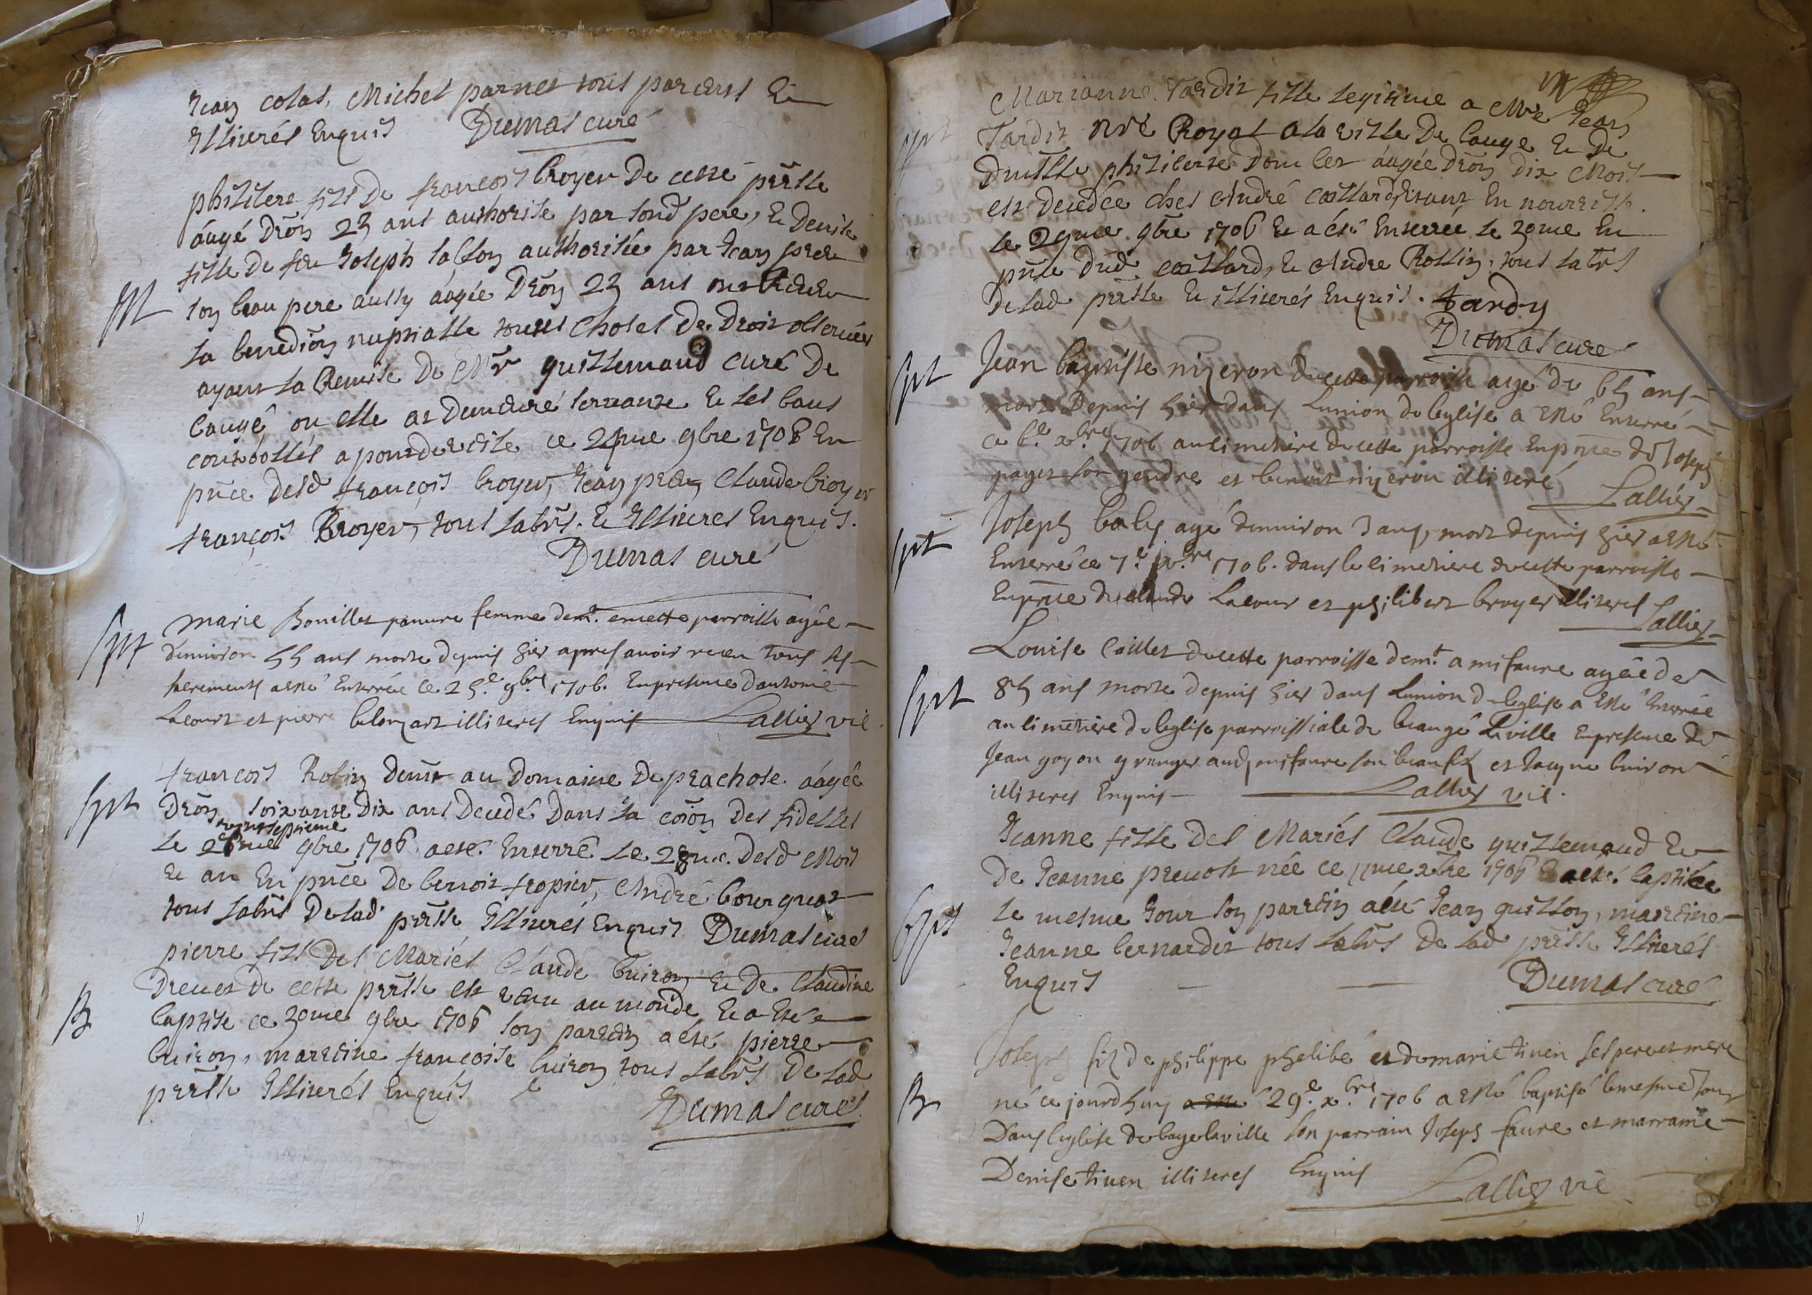 Jean colas, Michel parnet tous parens Et
Illiterés Enquis Dumas curé
philibere fils de francois broyer De cette prsse
aagé Dron 23 ans authorise par sond pere, Et Denise
fille de feu Joseph sablon authorisée par Jean
son beau pere aussy aagée Dron 23 ans ont
la benediōn nuptialle toutes choses de Droit observées
ayant la Remise De Mr guillemaud curé De
baugé ou elle at Demeuré servante Et les bans
controollés a pondevesle ce 24me 9bre 1706 En
pnce desd francois broyer, Jean Claude broyer
francois Broyer, tous labrs Et Illiteres Enquis.
Dumas curé
Spt marie Bouillet pauvre femme demt encette parroisse agée
denviron 55 ans morte depuis hier apres avoir receu tous ses
sacrements a esté Enterrée ce 25e 9bre 1706. En presence dantoine
Lacourt et pierre illiteres Enquis Lallier vic.
Spt francois Robin Demt au Domaine De prachose aagée
Dron soixante Dix ans Decedé Dans la coōn Des fidelles
vingtseptieme
Le 9bre 1706 a eté Enterré Le 28me desd Mois
Et an En pnce De benoit fropier, André bourguat
tous labrs De lad prsse Illiterés Enquis Dumas curé
pierre fils Des Mariés Claude buiron Et De Claudine
Drevet de cette prsse est venu au monde Et a Eté
B baptisé ce 30me 9bre 1706 son parrein a eté pierre
buiron, marreine francoise buiron tous labrs De lad
prsse Illiterés Enquis
Dumas curé
Marianne Tardit fille legitime a Mre Jean
Spt Tardit nre Royal a la ville De bauge Et De
Dmlle philiberte Doncler aagée Dron dix Mois
est decedée ches André coillard Etant En nourrisse
le 29me 9bre 1706 Et a été Enterrée le 30me En
pnce dud coillard, Et Andre Rollin, tous labrs
de lad prsse Et illiterés Enquis. tardy
Dumas curé
Spt Jean baptiste nizeron de cette parroisse agé de 65 ans
mort Depuis hier dans Lunion de leglise a esté Enterré
ce 6e xbre 1706 au cimetiere de cette parroisse En pnce de Joseph
pages son gendre et benoit nizeron illiteré Lallier
Spt Joseph baly agé denviron 3 ans, mort depuis hier a esté
Enterré ce 7e xbre 1706. dans le cimetiere de cette parroisse
En pnce de claude Lacour et philibert broyer illiteres
Lallier
Louise Caillet de cette parroisse demt a mifaure agée de
Spt 85 ans morte depuis hier dans Lunion de leglise a esté Enterrée
au cimetiere de leglise parroissiale de beaugé Laville En presence de
Jean goyon granger aud mifaure son beaufils et Jacque buiron
illiteres Enquis Lallier vic.
Jeanne fille des Mariés Claude guillemaud Et
De Jeanne prevost née ce 11me xbre 1706 Et a eté baptisée
Bpt le mesme Jour son parrein a été Jean guillon, marreine
Jeanne bernardet tous labrs de lad prsse Illiterés
Enquis Dumas curé
Joseph fils de philippe phelibé et de marie tiven ses pere et mere
B né ce jourdhuy a esté 29e xbre 1706 a esté baptisé le mesme Jour
Dans leglise de bagé laville son parrain Joseph faure et marraine
Denise tiven illiteres Enquis
Lallier vic